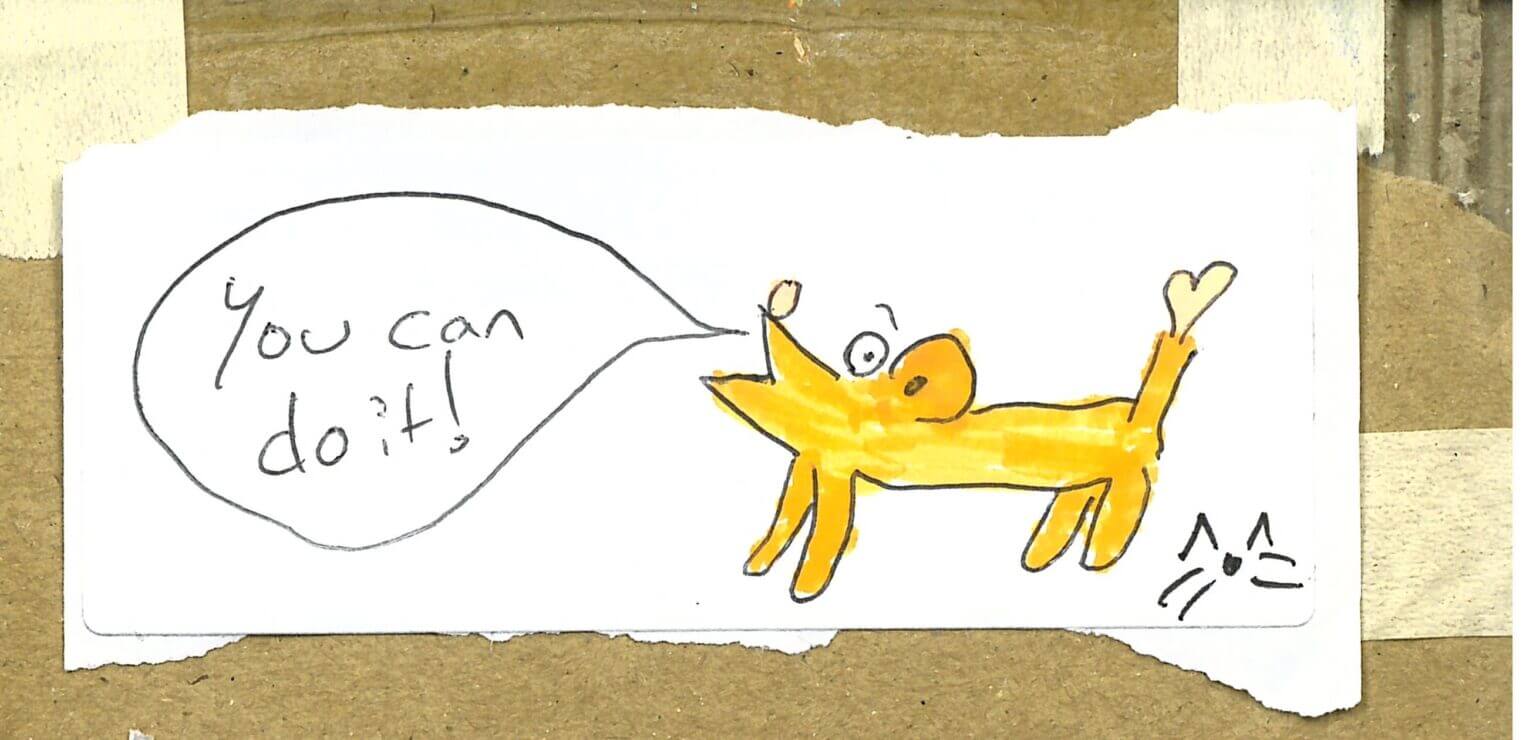 You can
do it!